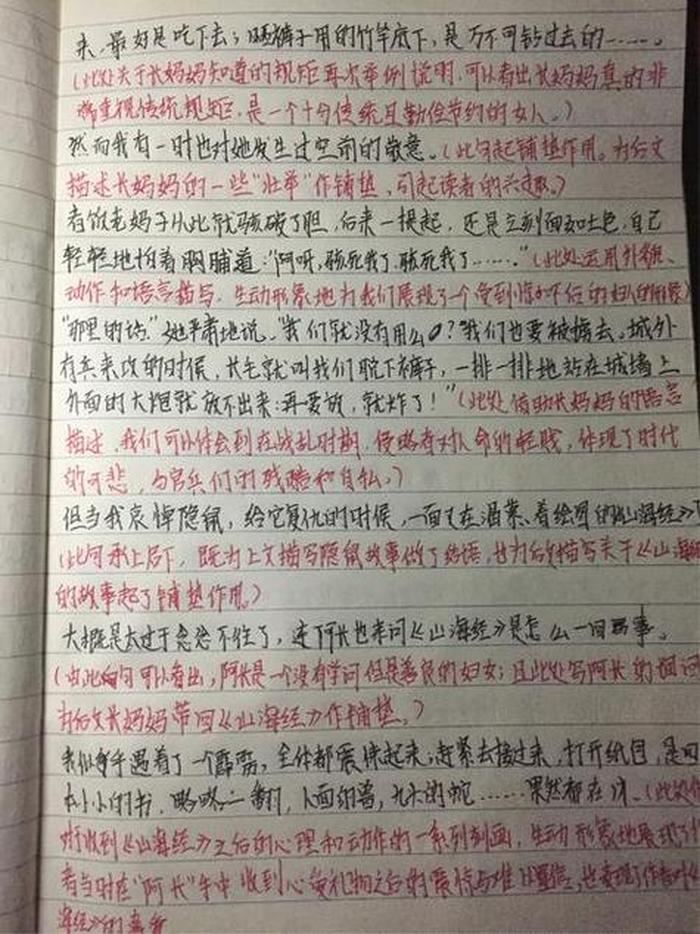 来，最好是吃下去；晒裤子用的竹竿底下，是万不可钻过去的……。
（此处关于长妈妈知道的规矩再次举例说明，可以看出长妈妈真的非
常重视传统规矩，是一个十分传统且勤俭节约的女人。）
然而我有一时也对她发生过空前的敬意。（此句起铺垫作用。为后文
描述长妈妈的一些“壮举”作铺垫，引起读者的兴趣。）
煮饭老妈子从此就骇破了胆，后来一提起，还是立刻面如土色，自己
轻轻地拍着胸脯道：“阿呀，骇死我了，骇死我了……”（此处运用外貌、
动作和语言描写，生动形象地为我们展现了一个受到惊吓后的妇人的
“那里的话”她严肃地说。“我们就没有用么？我们也要被掳去。城外
有兵来攻的时候，长毛就叫我们脱下裤子，一排一排地站在城墙上
外面的大炮就放不出来；再要放，就炸了！”（此处借助长妈妈的语言
描述，我们可以体会到在战乱时期，侵略者对人命的轻贱，体现了时代
的可悲，与官兵们的残酷和自私。）
但当我哀悼隐鼠，给它复仇的时候，一面又在渴慕着绘图的《山海经》
（此句承上启下，既为上文描写隐鼠故事做了结语，也为后文描写关于《山海
的故事起了铺垫作用。）
大概是太过于念念不忘了，连阿长也来问《山海经》是怎么一回事。
（由此句可以看出，阿长是一个没有学问但是善良的妇女；且此处写阿长的
为后文长妈妈带回《山海经》作铺垫。）
我似乎遇着了一个霹雳，全体都震悚起来；赶紧去接过来，打开纸包，是四
本小小的书，略略一翻，人面的兽，九头的蛇……果然都在内。（此处
收到《山海经》之后的心理和动作的一系列刻画，生动形象地展现了
者当时在“阿长”手中收到心爱礼物之后的震惊与难以置信，也表现了作者对
海经》的喜爱